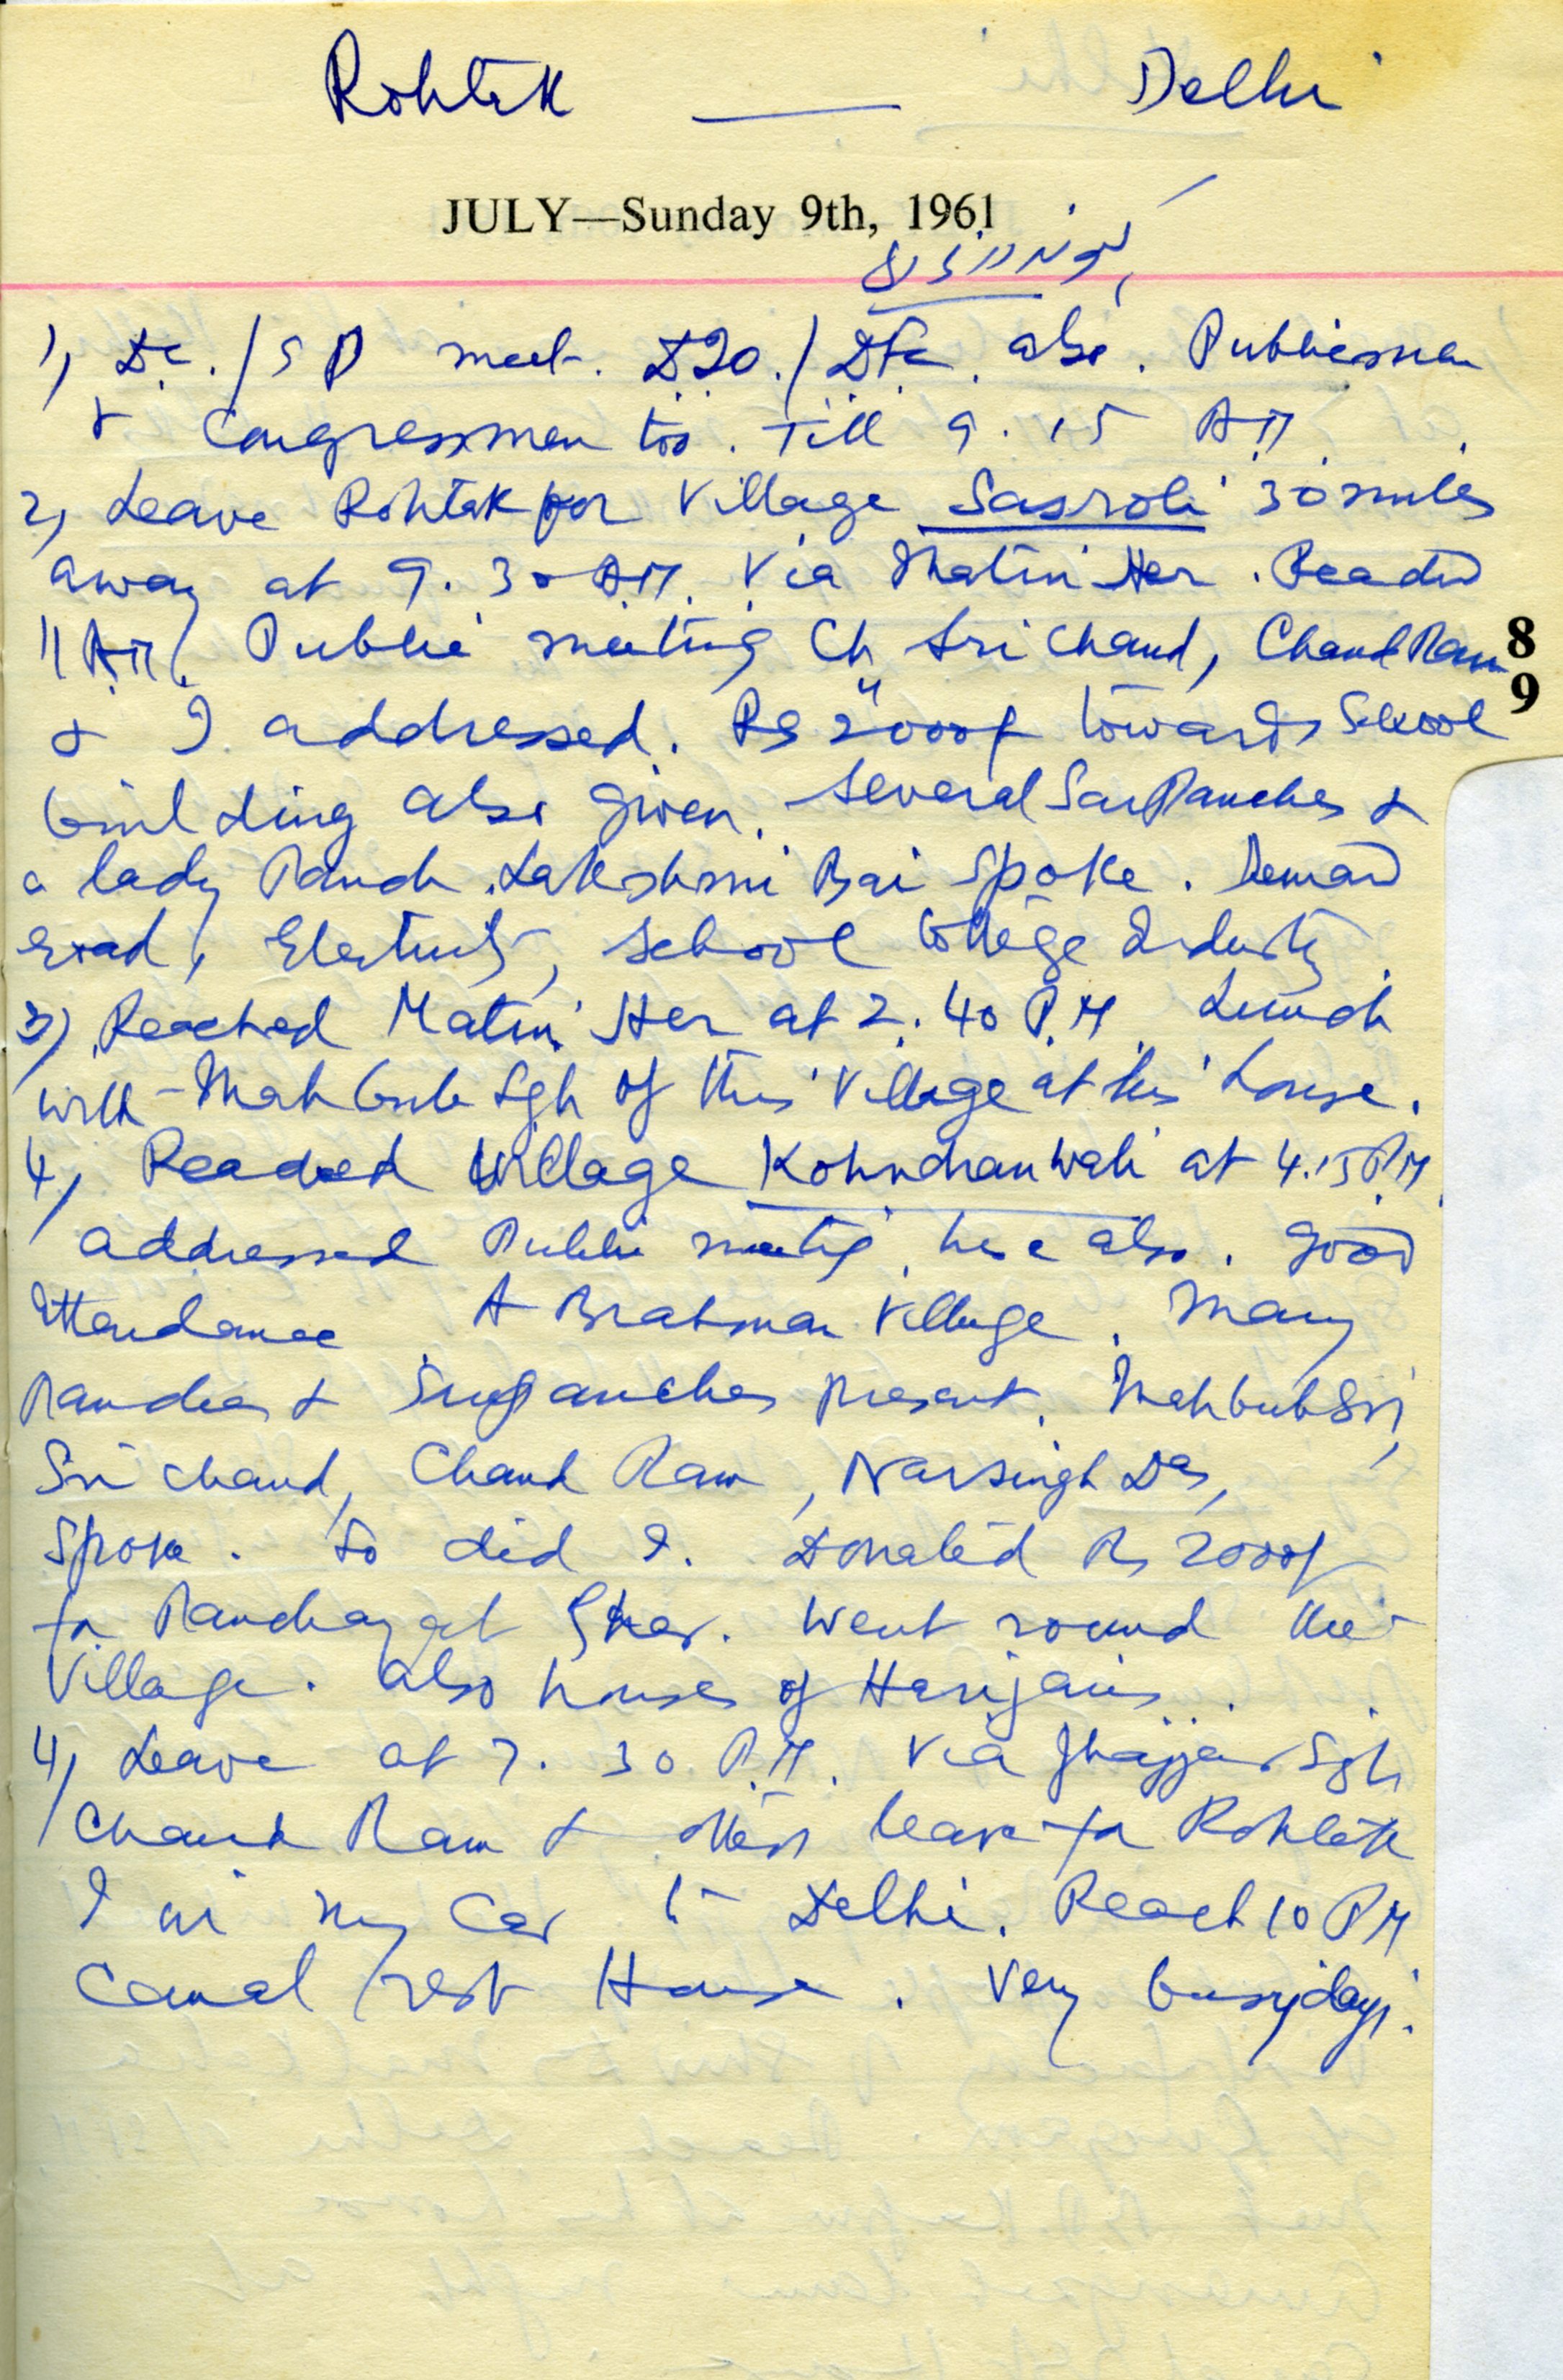 Rohtak — Delhi
JULY—Sunday 9th, 1961
1) D.C./S P meet. also. Publicmen
& Congressmen too. Till 9.15 A.M.
2) Leave Rohtak for Village Sasroli 30 miles
away at 9.30 A.M. Via Matin Her. Reached
11 A.M. Public meeting Ch Sri Chand, Chand Ram
& I addressed. Rs 2000/ towards School
building also given. Several SarPanches &
a lady Panch Lakshmi Bai spoke. Demand
road, Electricity, School College Industry.
3) Reached Matin Her at 2.40 P.M. Lunch
with Mahbub Sgh of this Village at his house.
4) Reached Village at 4.15 P.M.
addressed Public meeting here also. Good
Attendance. A Brahman Village. Many
Panches & Surpanches Present. Mahbub
Sri Chand, Chand Ram, Narsingh Das,
Spoke. So did I. Donated Rs 2000/
for Panchayat Ghar. Went round the
Village. also houses of Harijans.
4) Leave at 7.30 P.M. Via Jhajjar
Chand Ram & others leave for Rohtak
I in my Car to Delhi. Reach 10 PM
Canal rest House. Very busy days.
8
9